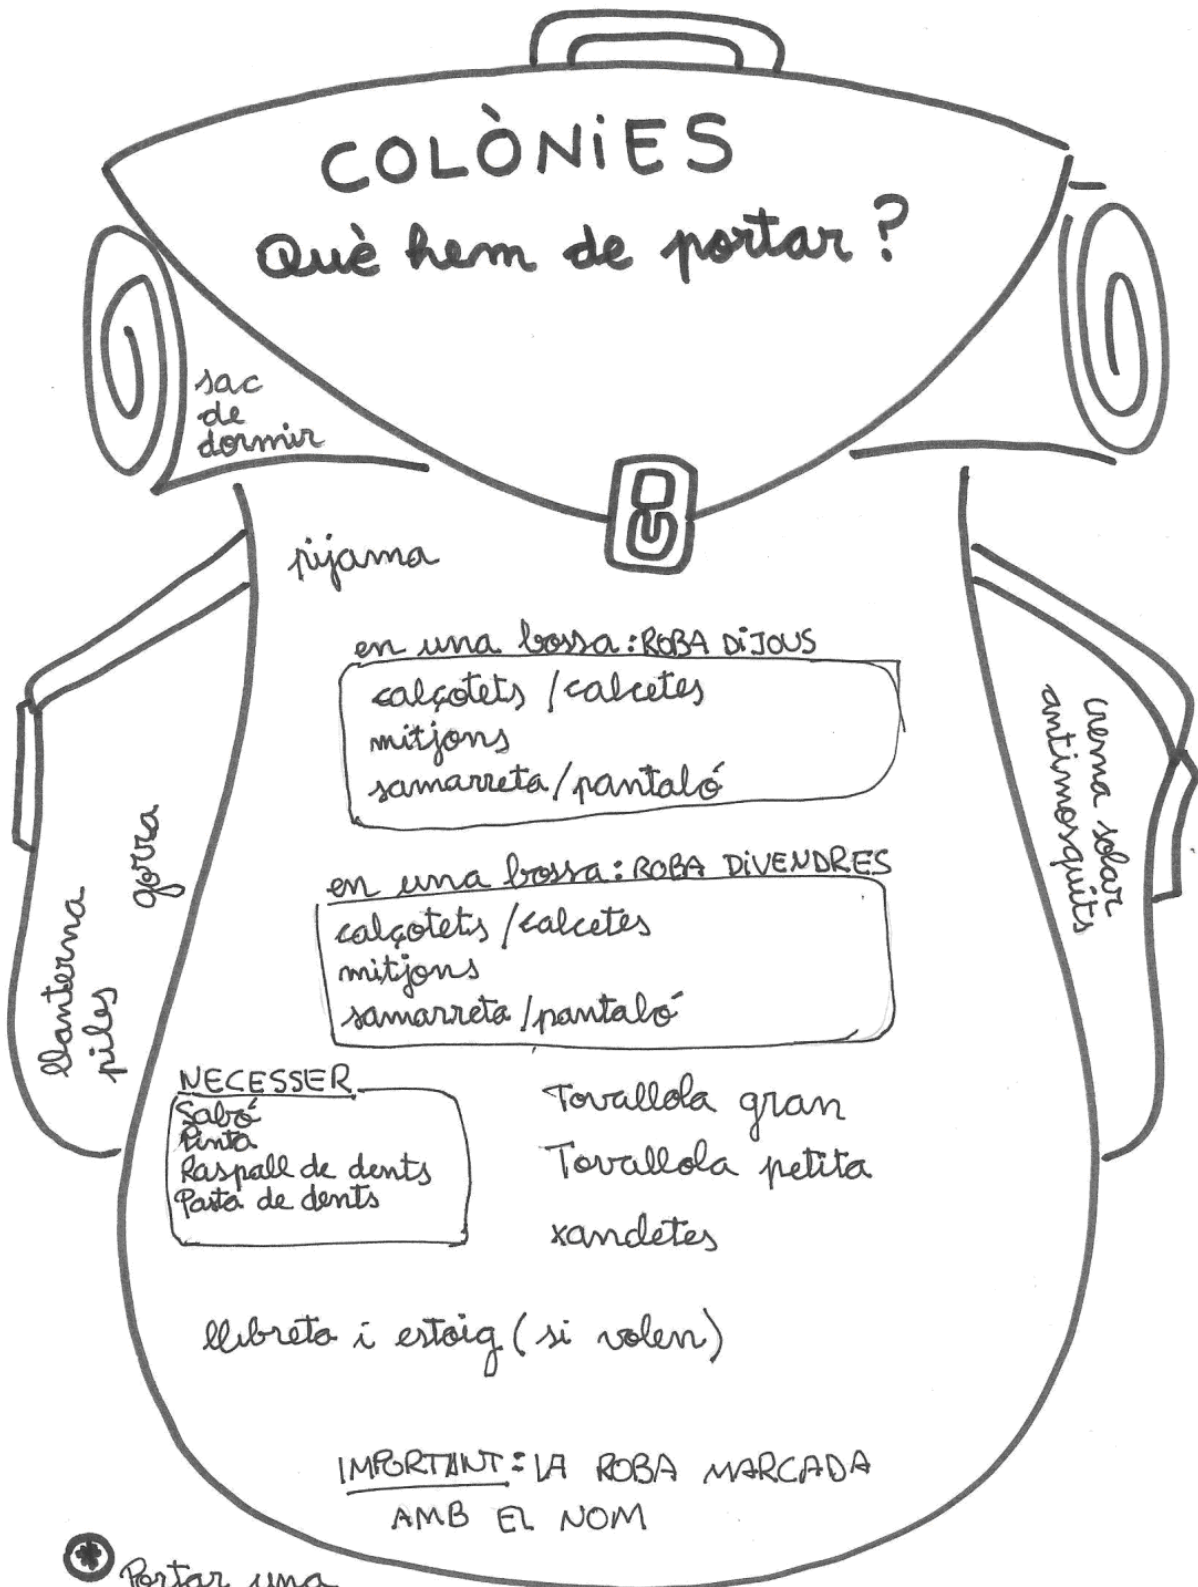 COLÒNiES
Què hem de portar?
sac
de
dormir
pijama
en una bossa: ROBA DiJOUS
calçotets / calcetes
mitjons
samarreta / pantaló
en una bossa: ROBA DiVENDRES
calçotets / calcetes
mitjons
samarreta / pantaló
gorra
llanterna
piles
crema solar
antimosquits
NECESSER
Sabó
Pinta
Raspall de dents
Pasta de dents
Tovallola gran
Tovallola petita
xandetes
llibreta i estoig (si volen)
IMPORTANT: LA ROBA MARCADA
AMB EL NOM
* Portar una